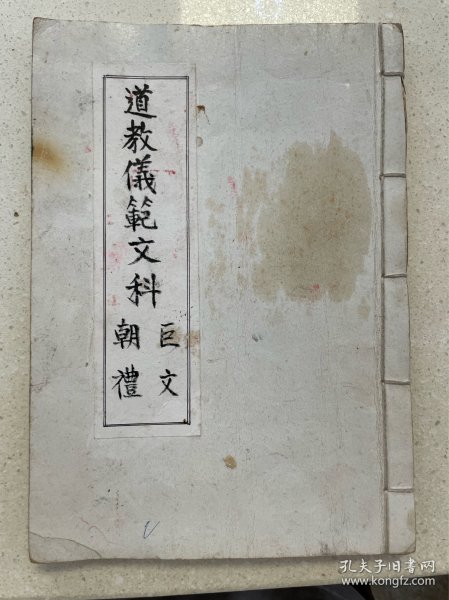 道教儀範文科
巨文
朝禮
孔夫子旧书网
www.kongfz.com